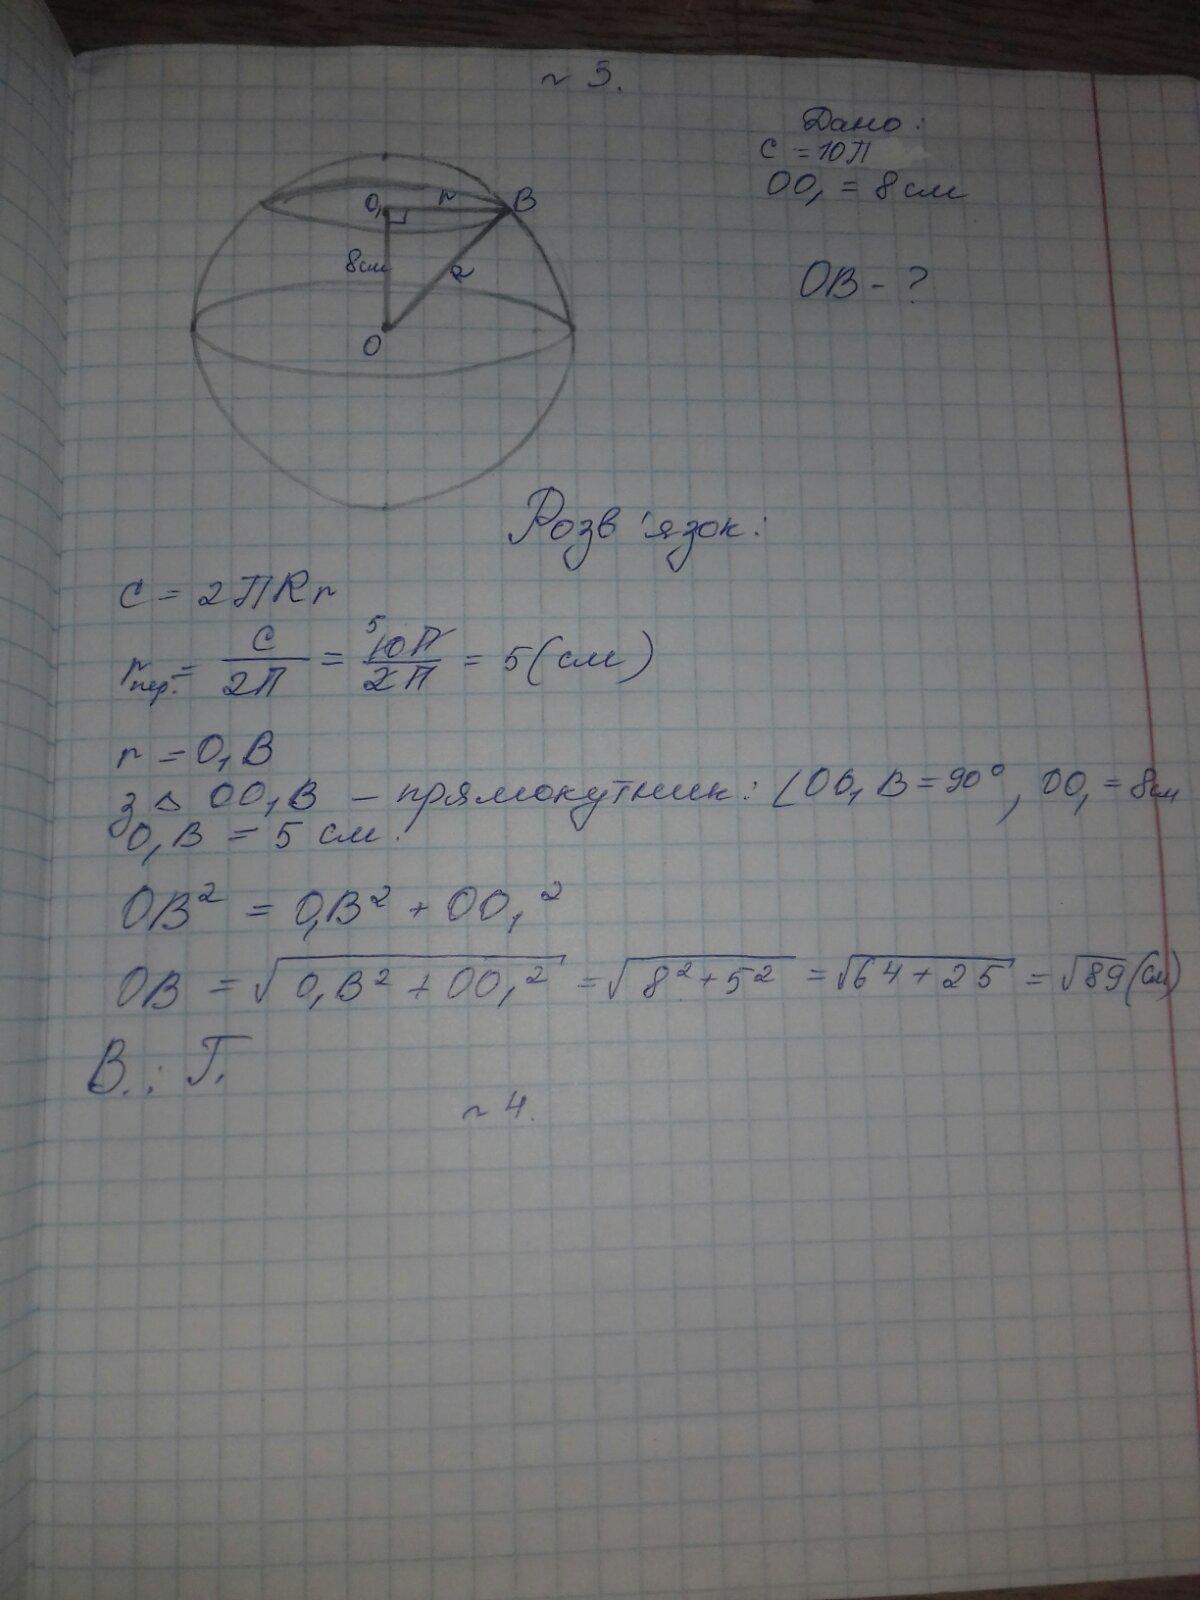 ~ 3.
Дано:
C = 10П
OO₁ = 8 см
OB - ?
O₁ r B
8см R
O
Розв'язок:
C = 2ПRr
r пер. = C/2П = 5 10П/2П = 5 (см)
r = O₁B
з △ OO₁B - прямокутник: ∠OO₁B = 90°, OO₁ = 8см
O₁B = 5 см.
OB² = O₁B² + OO₁²
OB = √O₁B² + OO₁² = √8² + 5² = √64 + 25 = √89 (см)
В.: Г.
~ 4.